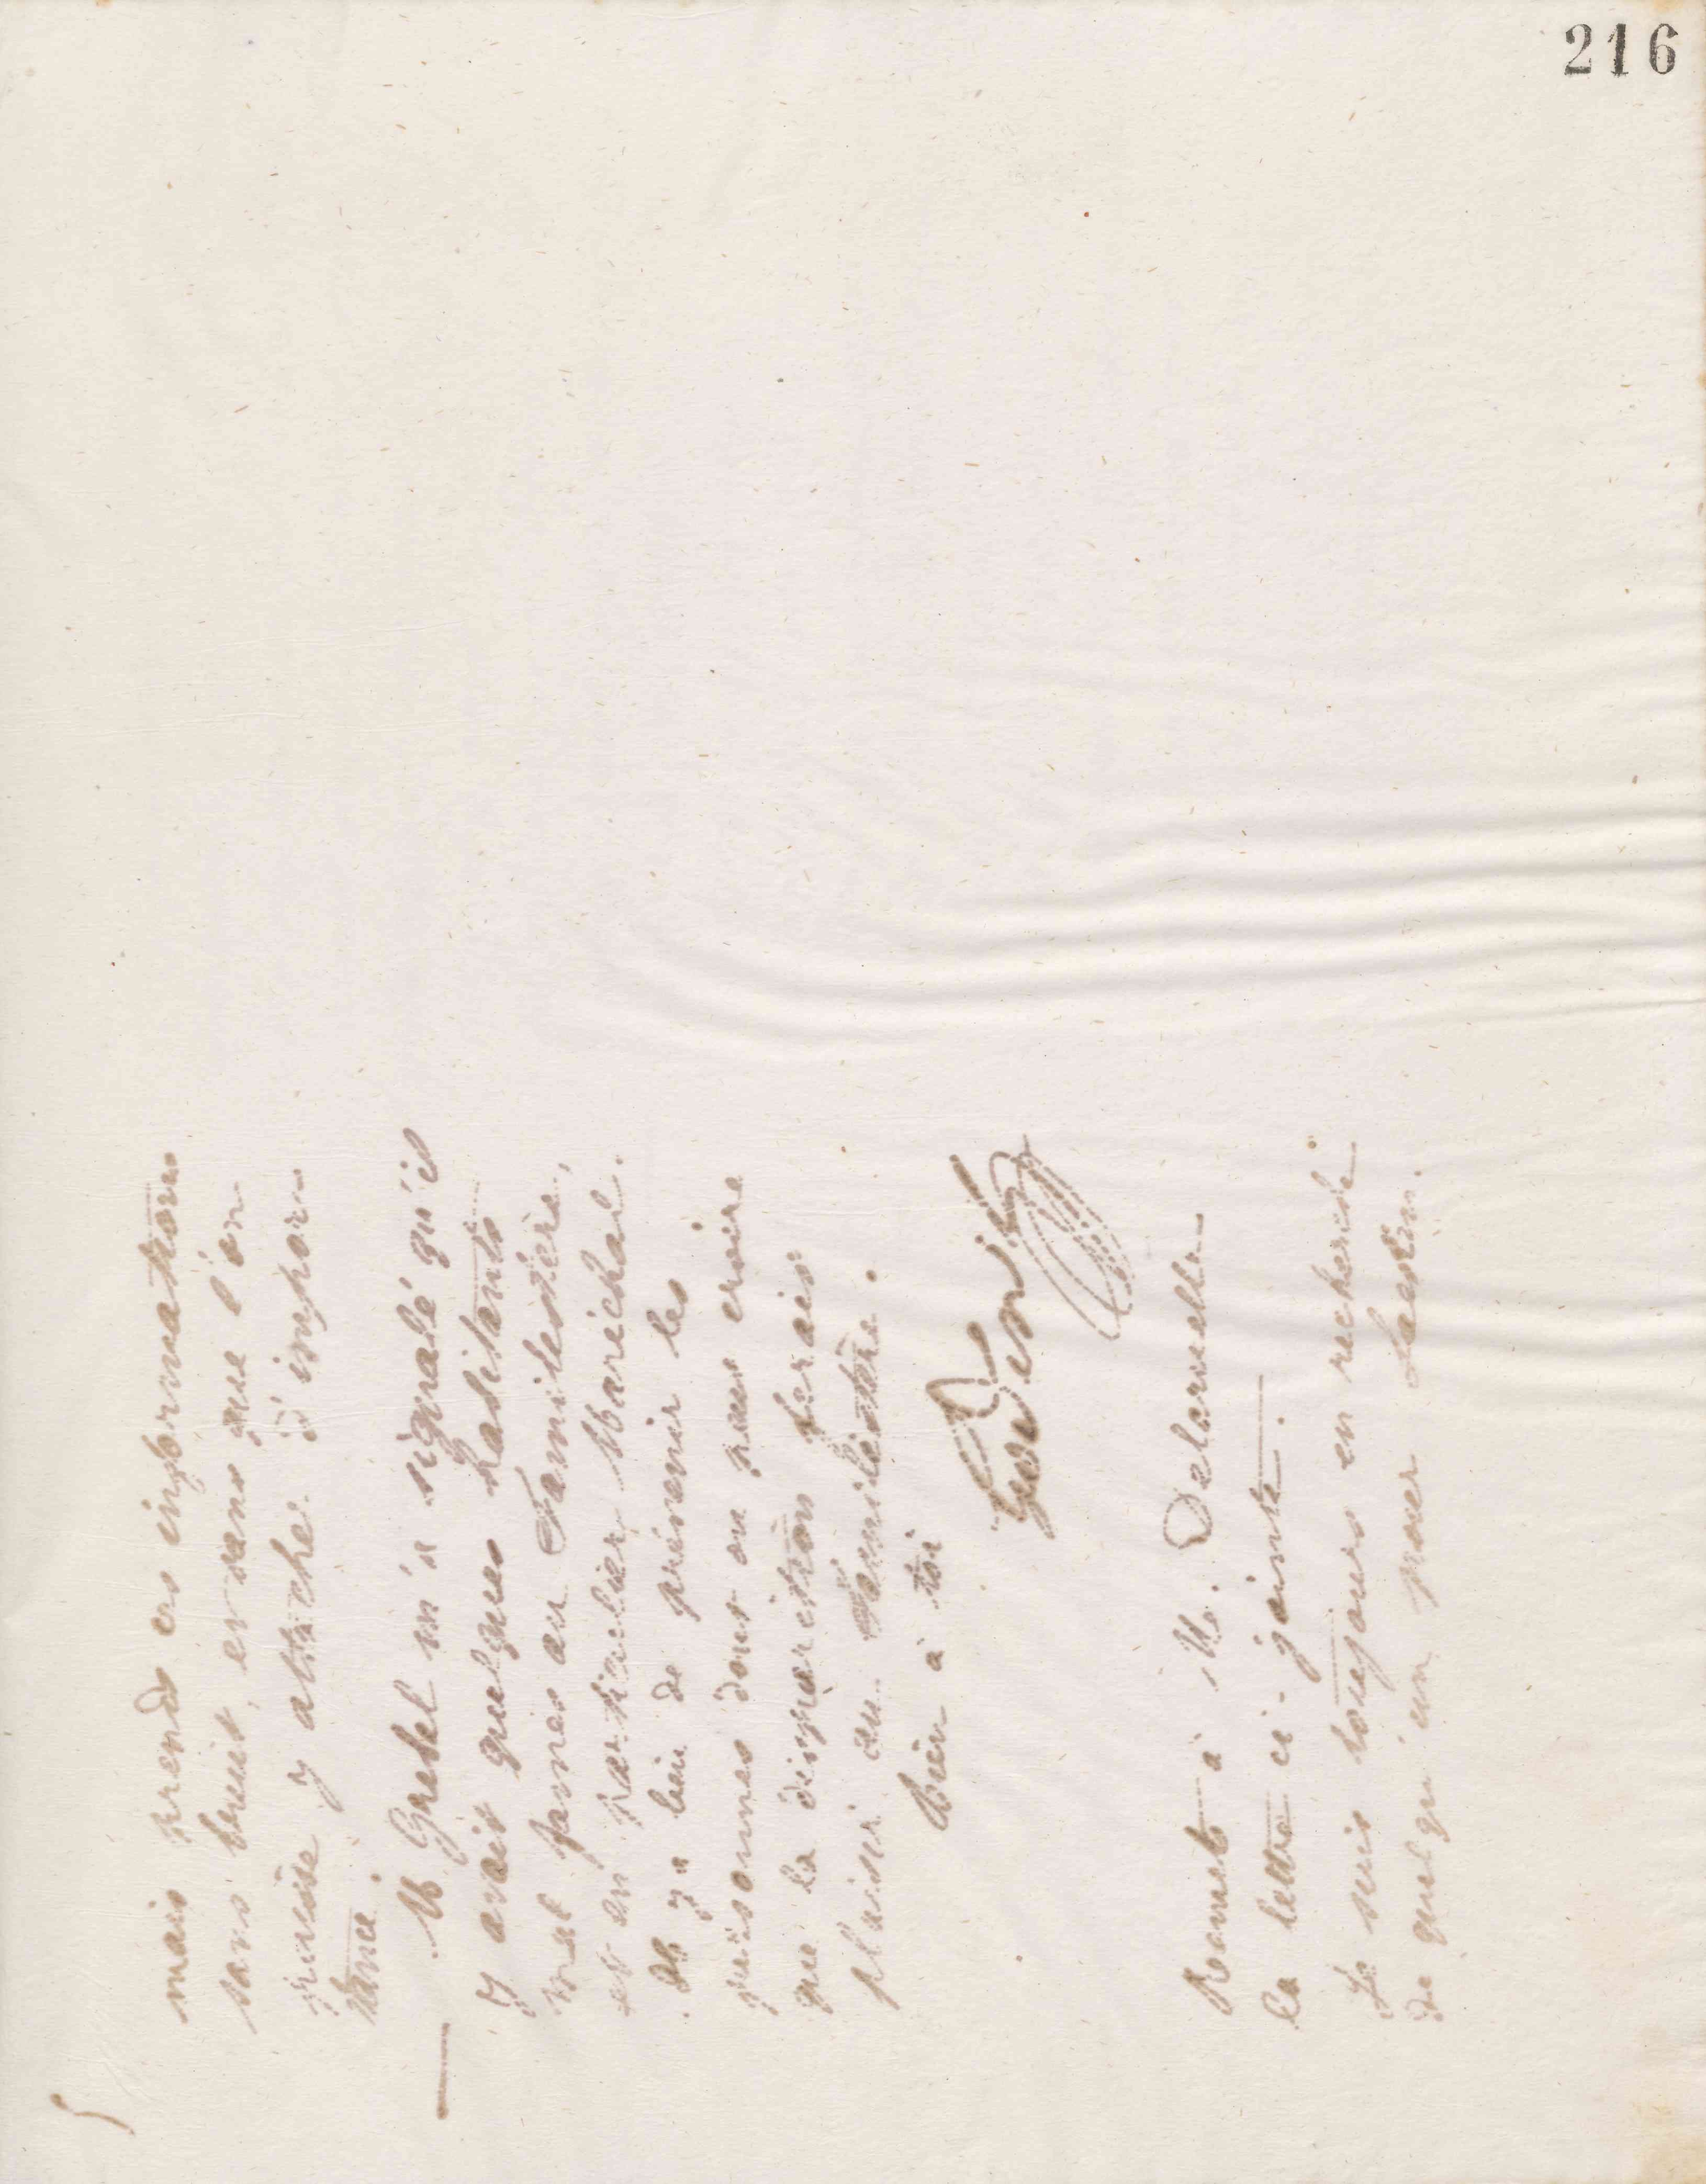 216
mais prends ces informations
sans bruit, et sans que l'on
puisse y attacher d'impor
tance.
M. Grebel m'a signalé qu'il
y avait quelques habitants
mal famés au Familistère,
et en particulier Maréchal.
Il y a lieu de prévenir les
personnes dont on peut croire
que la disparition ferait
plaisir au Familistère.
Bien à toi
Godin
Remets à M. Delaruelle
la lettre ci-jointe.
Je suis toujours en recherche
de quelqu'un pour